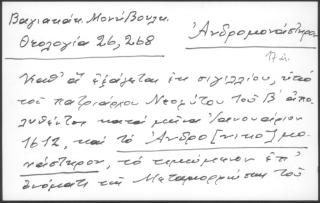 Βαγιακάκ. Μονύβουλκ.
Θεολογία 26, 268
Ἀνδρομονάστηρον
17 αἰ.
Καθ' ἃ ἐξάγεται ἐκ σιγιλλίου, ὑπὸ
τοῦ πατριάρχου Νεοφύτου τοῦ Β' ἀπο-
λυθέντος κατὰ μῆνα Ἰανουάριον
1612, καὶ τὸ Ἀνδρο[νικο]μο-
νάστηρον, τὸ τιμώμενον ἐπ'
ὀνόματι τῆς Μεταμορφώσεως τοῦ